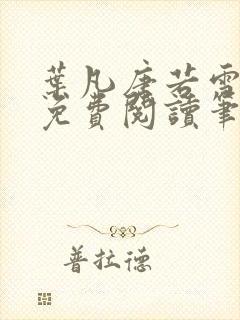 葉凡唐若雪
免費閱讀筆
普拉德